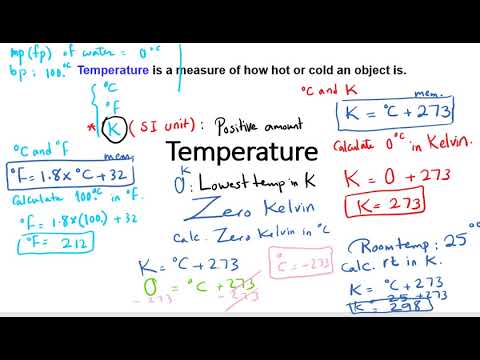 mp(fp) of water = 0°C
bp: 100.°C
Temperature is a measure of how hot or cold an object is.
°C
°F
* K (SI unit): Positive amount
°C and K
mem.
K = °C + 273
Calculate 0°C in Kelvin.
K = 0 + 273
K = 273
°C and °F
mem.
°F = 1.8 x °C + 32
Calculate 100.°C in °F.
°F = 1.8 x (100.) + 32
°F = 212
Temperature
0 K : Lowest temp in K
Zero Kelvin
Calc. Zero Kelvin in °C
K = °C + 273
0 = °C + 273
-273 -273
°C = -273
Room temp: 25°C
Calc. rt in K.
K = °C + 273
K = 25 + 273
K = 298